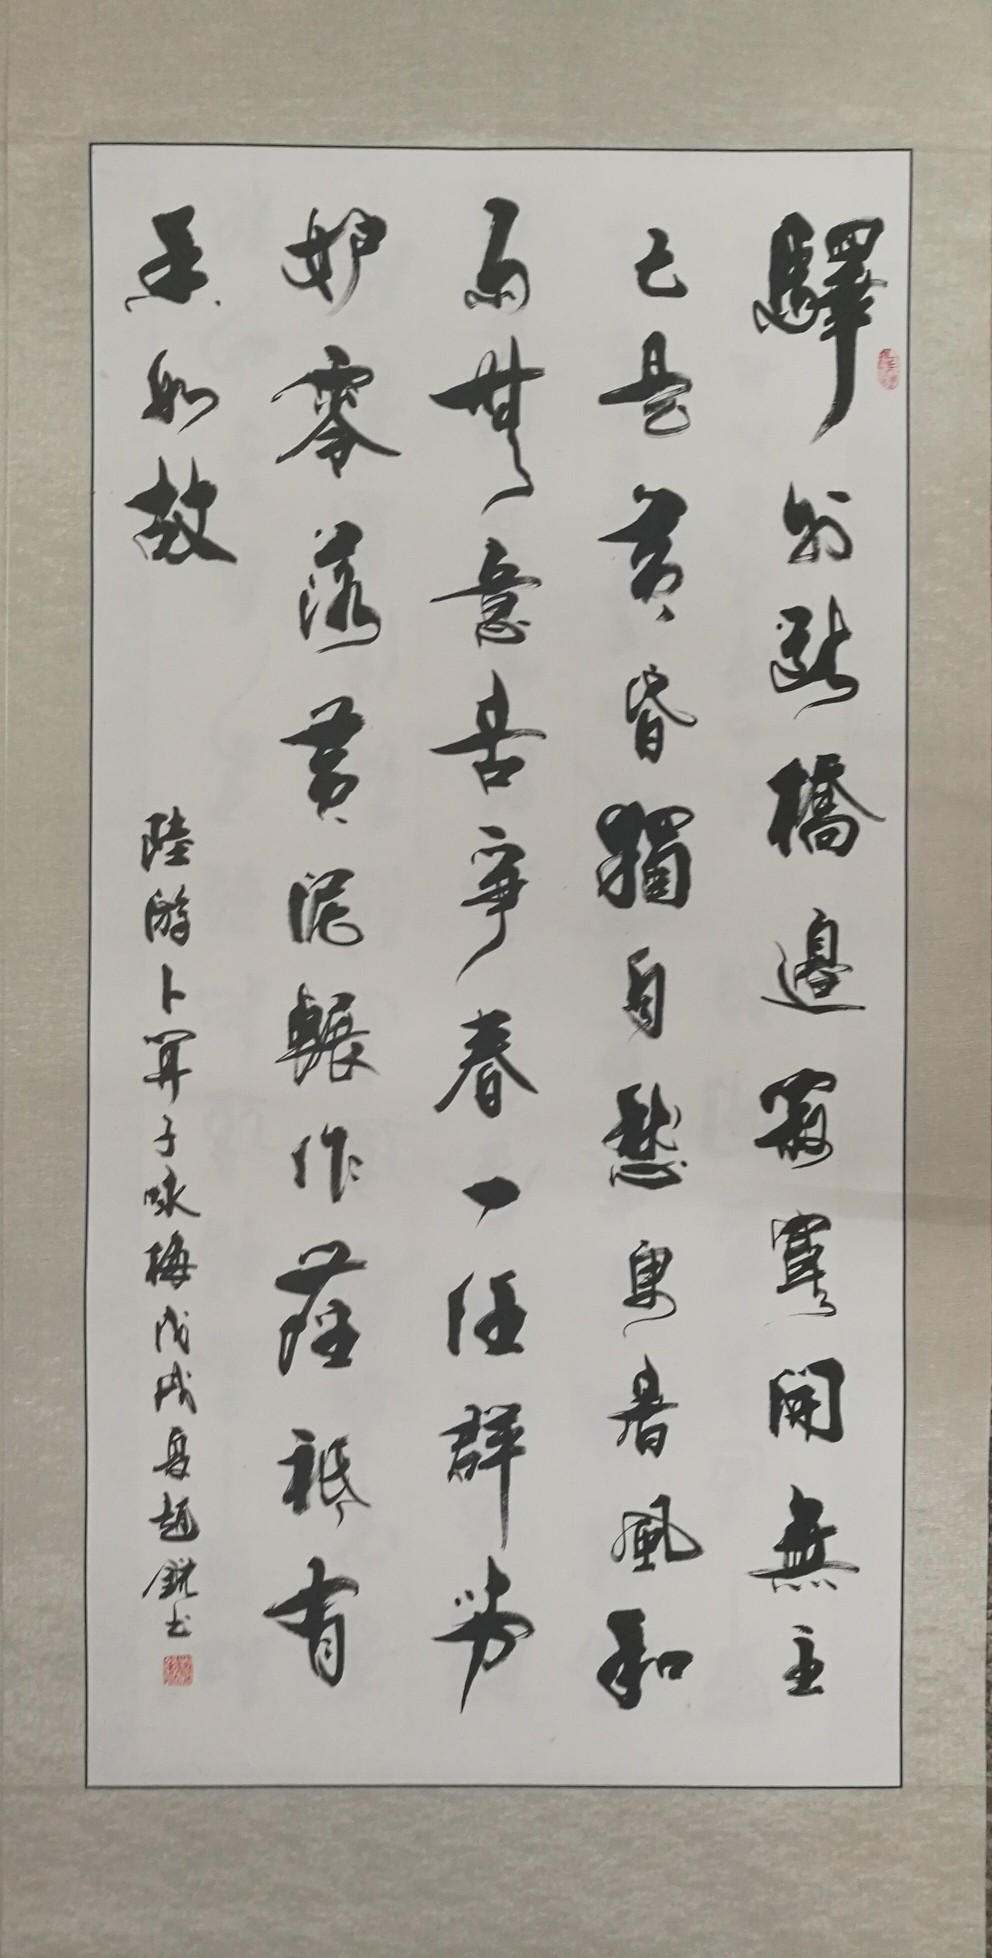 驛外斷橋邊寂寞開無主
已是黃昏獨自愁更著風和
雨無意苦爭春一任群芳
妒零落黃泥輾作塵祗有
香如故
陸游卜算子咏梅戊戌夏趙銳书